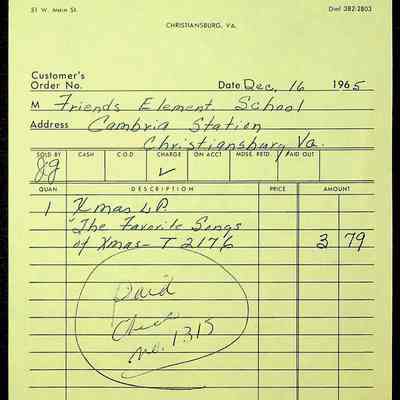 51 W. Main St.
Dial 382-2803
CHRISTIANSBURG, VA.
Customer's
Order No.
Date Dec, 16 1965
M Friends Element. School
Address Cambria Station
Christiansburg Va.
SOLD BY CASH C.O.D. CHARGE ON ACCT. MDSE. RETD. PAID OUT
jg ✓
QUAN DESCRIPTION PRICE AMOUNT
1 Xmas L.P.
The Favorite Songs
of Xmas - T 2176 3 79
Paid
Check
no. 1315